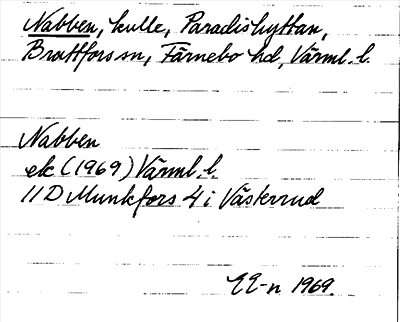 Nabben, kulle, Paradishyttan,
Brattfors sn, Färnebo hd, Värml. l.
Nabben
ek (1969) Värml. l.
11D Munkfors 4 i Västerrud
EE-n 1969.